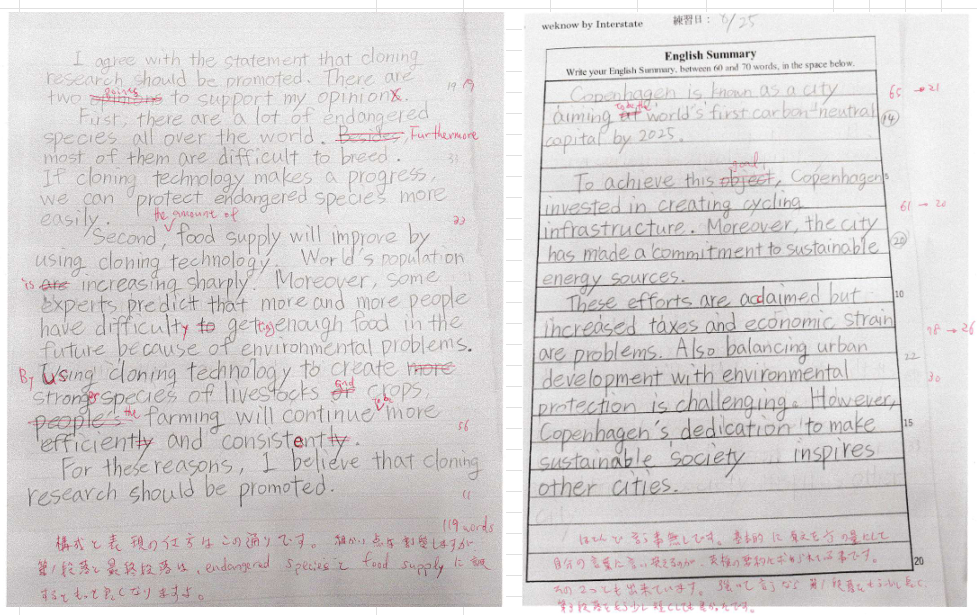 I agree with the statement that cloning
research should be promoted. There are
points
two opinions to support my opinion.
19
First, there are a lot of endangered
species all over the world. Besides, Furthermore
most of them are difficult to breed.
33
If cloning technology makes a progress,
we can protect endangered species more
easily.
the amount of
Second, food supply will improve by
using cloning technology. World's population
is are increasing sharply. Moreover, some
experts predict that more and more people
have difficulty to getting enough food in the
future because of environmental problems.
By Using cloning technology to create more
stronger species of livestocks or and crops,
people's the farming will continue to be more
efficiently and consistently.
56
For these reasons, I believe that cloning
research should be promoted.
119 words
構成と表現の仕方はこの通りです。
第1段落と最終段落は、endangered species と food supply に
するともっと良くなりますよ。
weknow by Interstate
練習日: 6/25
English Summary
Write your English Summary, between 60 and 70 words, in the space below.
Copenhagen is known as a city
65 → 21
to be the
aiming at world's first carbon-neutral
14
capital by 2025.
goal,
To achieve this object, Copenhagen
5
invested in creating cycling
61 → 20
infrastructure. Moreover, the city
20
has made a commitment to sustainable
energy sources.
These efforts are acclaimed but
10
increased taxes and economic strain
98 → 26
are problems. Also balancing urban
development with environmental
30
protection is challenging. However,
Copenhagen's dedication to make
15
sustainable society inspires
other cities.
20